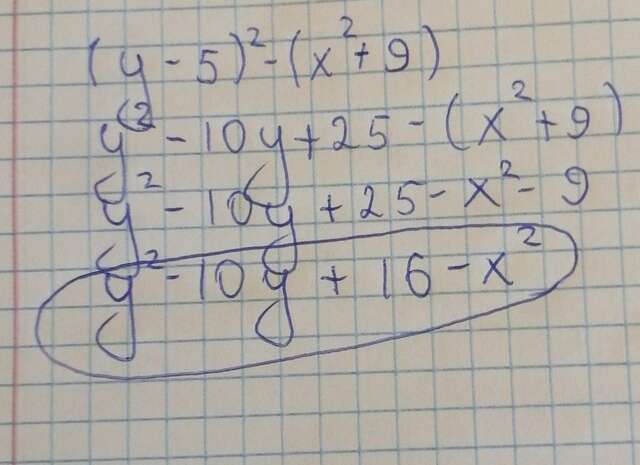 (y - 5)² - (x² + 9)
y² - 10y + 25 - (x² + 9)
y² - 10y + 25 - x² - 9
y² - 10y + 16 - x²